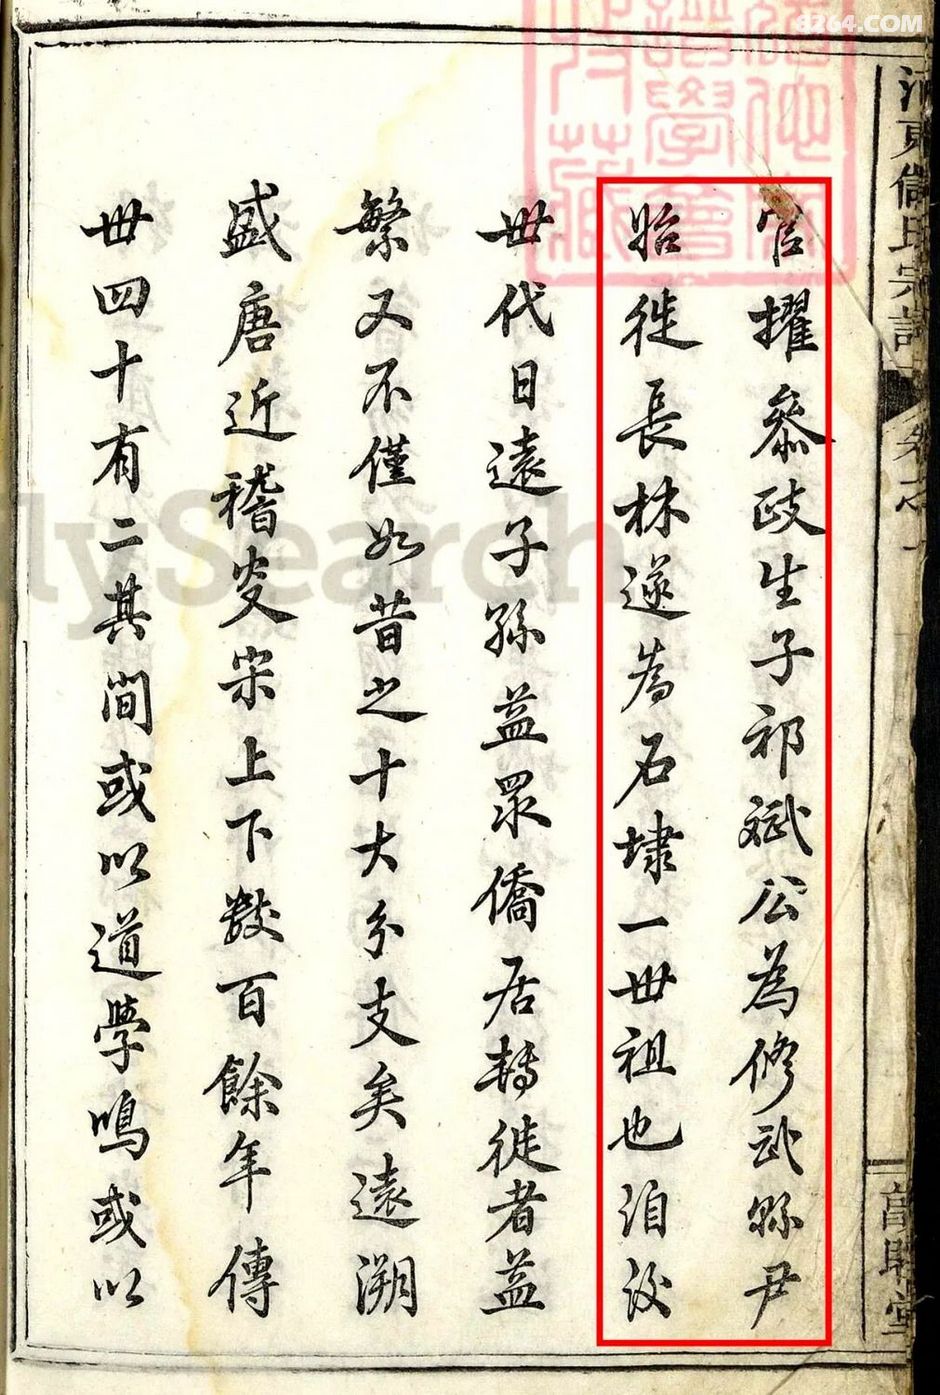 官擢叅政生子祁斌公為修武縣尹
始徙長林遂為石埭一世祖也洎後
世代日遠子孫益眾僑居轉徙者益
繁又不僅如昔之十大分支矣遠溯
盛唐近稽炎宋上下數百餘年傳
世四十有二其間或以道學鳴或以
8264.COM
lySearch